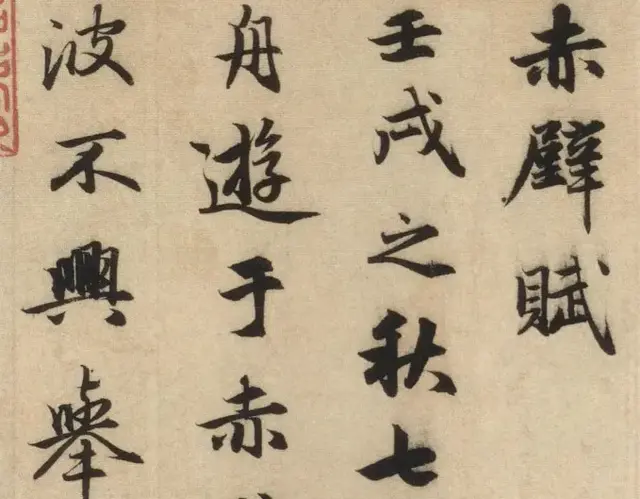 赤壁賦
壬戌之秋七
舟遊于赤
波不興舉